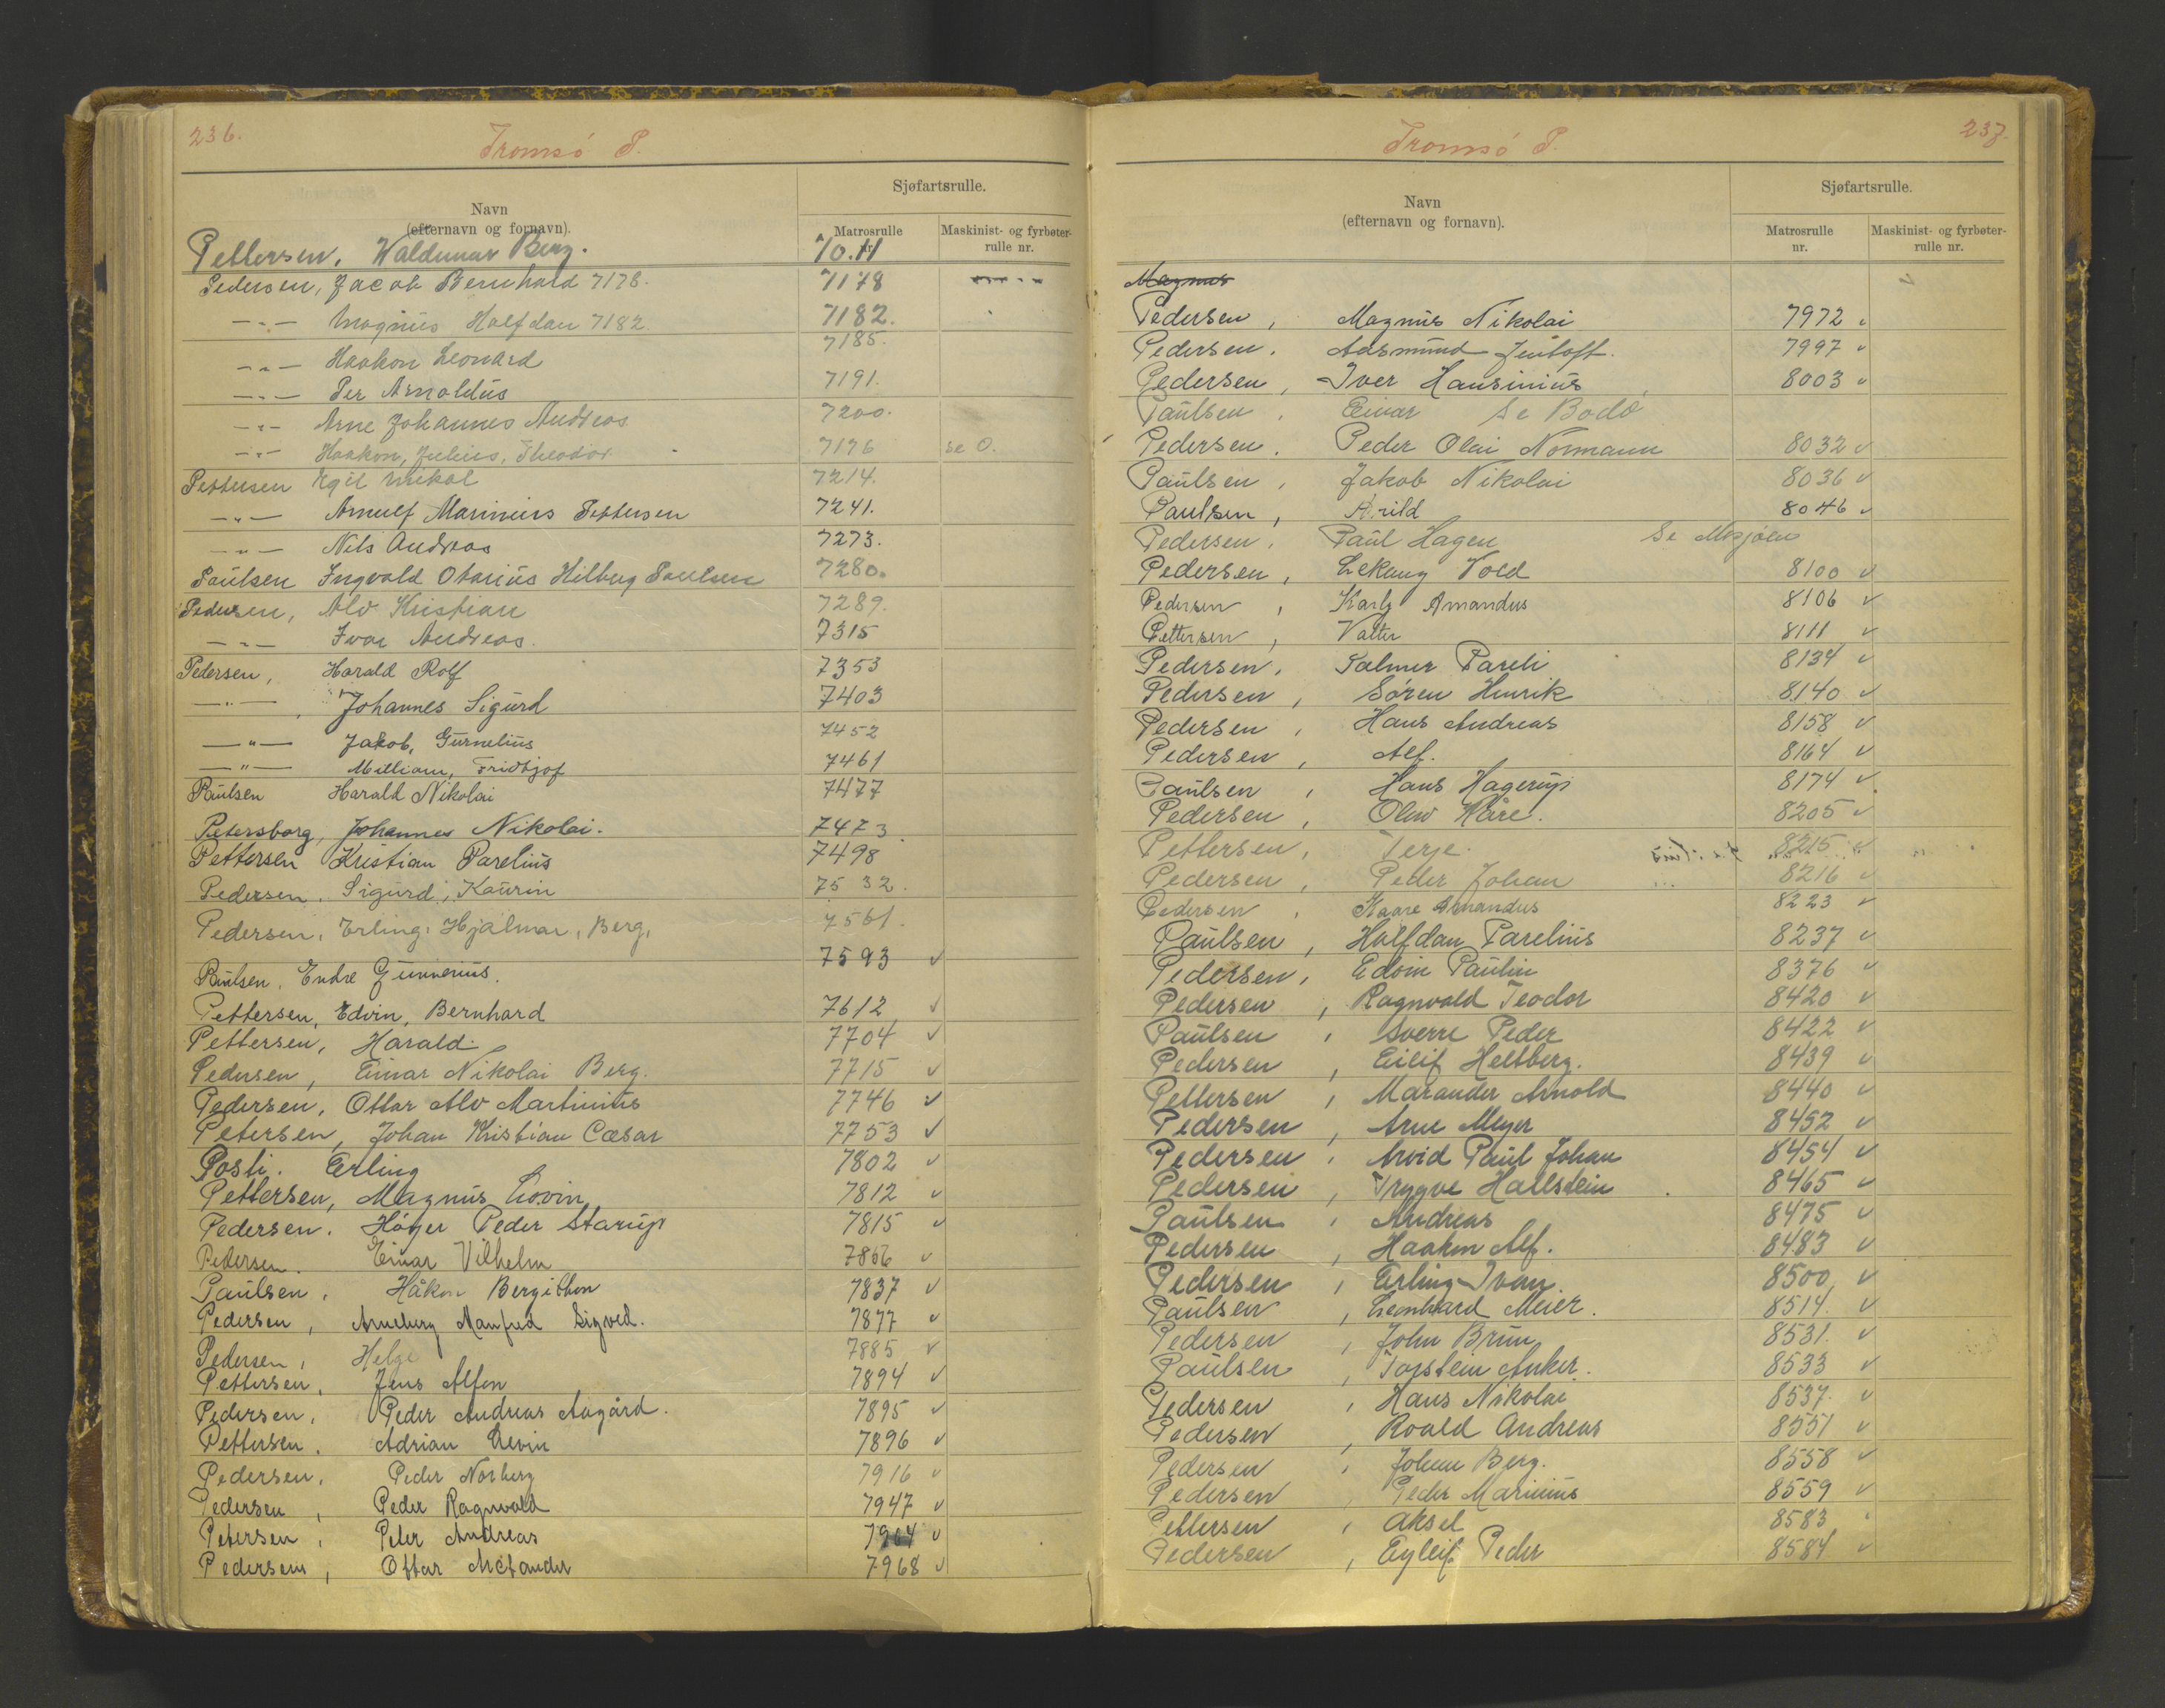 236.
Tromsö P.
Navn
(efternavn og fornavn).
Sjøfartsrulle.
Matrosrulle nr.
Maskinist- og fyrbøter-rulle nr.
Pettersen, Waldemar Berg. 70.11
Pedersen, Jacob Bernhard 7178. 7178
-„- Magnus Halfdan 7182. 7182.
-„- Haakon Leonard 7185.
-„- Per Arnoldus 7191.
-„- Arne Johannes Andreas 7200.
-„- Haakon, Julius, Theodor 7176 se O.
Pettersen Egil Mikal 7214.
-„- Arnulf Marinius Pettersen 7241.
-„- Nils Andreas 7273.
Paulsen Ingvald Otarius Hilberg Paulsen 7280.
Pedersen, Alv Kristian 7289.
-„- Ivar Andreas. 7315
Pedersen, Harald Rolf 7353
-„-, Johannes Sigurd 7403
-„- Jakob, Gurnelius 7452
-„- William, Fridtjof 7461
Paulsen Harald Nikolai 7477
Petersborg, Johannes Nikolai. 7473
Pettersen Kristian Parelius 7498
Pedersen, Sigurd, Kaurin 7532.
Pedersen, Erling, Hjalmar, Berg, 7561.
Paulsen, Endre Gunnerius. 7593 v
Pettersen, Edvin, Bernhard 7612 v
Pettersen, Harald. 7704 v
Pedersen, Einar Nikolai Berg. 7715 v
Pedersen, Ottar Alv Martinius 7746 v
Petersen, Johan Kristian Cæsar 7753 v
Posti. Erling 7802 v
Pettersen, Magnus Lovin 7812 v
Pedersen. Höyer Peder Starup 7815 v
Pettersen. Einar Vilhelm 7866 v
Paulsen, Håkon Bergithon 7837 v
Pedersen, Arneberg Manfred Sigved. 7877 v
Pedersen, Helge 7885 v
Pettersen, Jens Alfon 7894 v
Pedersen, Peder Andreas Aagård. 7895 v
Pettersen. Adrian Levin 7896 v
Pedersen, Peder Norberg 7916 v
Pedersen, Peder Ragnvald 7947 v
Petersen, Peter Andreas 7964 v
Pedersen, Ottar Metander 7968 v
237.
Tromsö P.
Navn
(efternavn og fornavn).
Sjøfartsrulle.
Matrosrulle nr.
Maskinist- og fyrbøter-rulle nr.
Magnus
Pedersen, Magnus Nikolai 7972 v
Pedersen. Aasmund Jentoft. 7997 v
Pedersen, Iver Hansinius 8003 v
Paulsen, Einar Se Bodö
Pedersen. Peder Olai Normann 8032 v
Paulsen, Jakob Nikolai 8036 v
Paulsen, Arild 8046 v
Pedersen, Paul Hagen Se Msjöen
Pedersen, Lekang Vold 8100 v
Pedersen, Karly Amandus 8106 v
Pettersen, Valter 8111 v
Pedersen, Salmer Pareli 8134 v
Pedersen, Sören Henrik 8140 v
Pedersen, Hans Andreas 8158 v
Pedersen, Alf. 8164 v
Paulsen, Hans Hagerup 8174 v
Pedersen, Olav Kåre. 8205 v
Pettersen, Terje. 8215 v
Pedersen, Peder Johan 8216 v
Pedersen, Kaare Amandus 8223 v
Paulsen, Halfdan Parelius 8237 v
Pedersen, Edvin Paulin 8376 v
Pedersen, Ragnvald Teodor 8420 v
Paulsen, Sverre Peder 8422 v
Pedersen, Eilif Heltberg. 8439 v
Pettersen, Marander Arnold 8440 v
Pedersen, Arne Meyer 8452 v
Pedersen, Arvid Paul Johan 8454 v
Pedersen, Trygve Hallstein 8465 v
Paulsen, Andreas 8475 v
Pedersen, Haakon Alf. 8483 v
Pedersen, Erling Ivan 8500 v
Paulsen, Leonhard Meier. 8514. v
Pedersen, John Brun 8531. v
Paulsen, Torstein Anker. 8533 v
Pedersen, Hans Nikolai 8537. v
Pedersen, Roald Andreas 8551 v
Pedersen, Johan Berg. 8558 v
Pedersen, Peder Marinius 8559 v
Pettersen, Aksel 8583
Pedersen, Eyleif Peder 8584 v